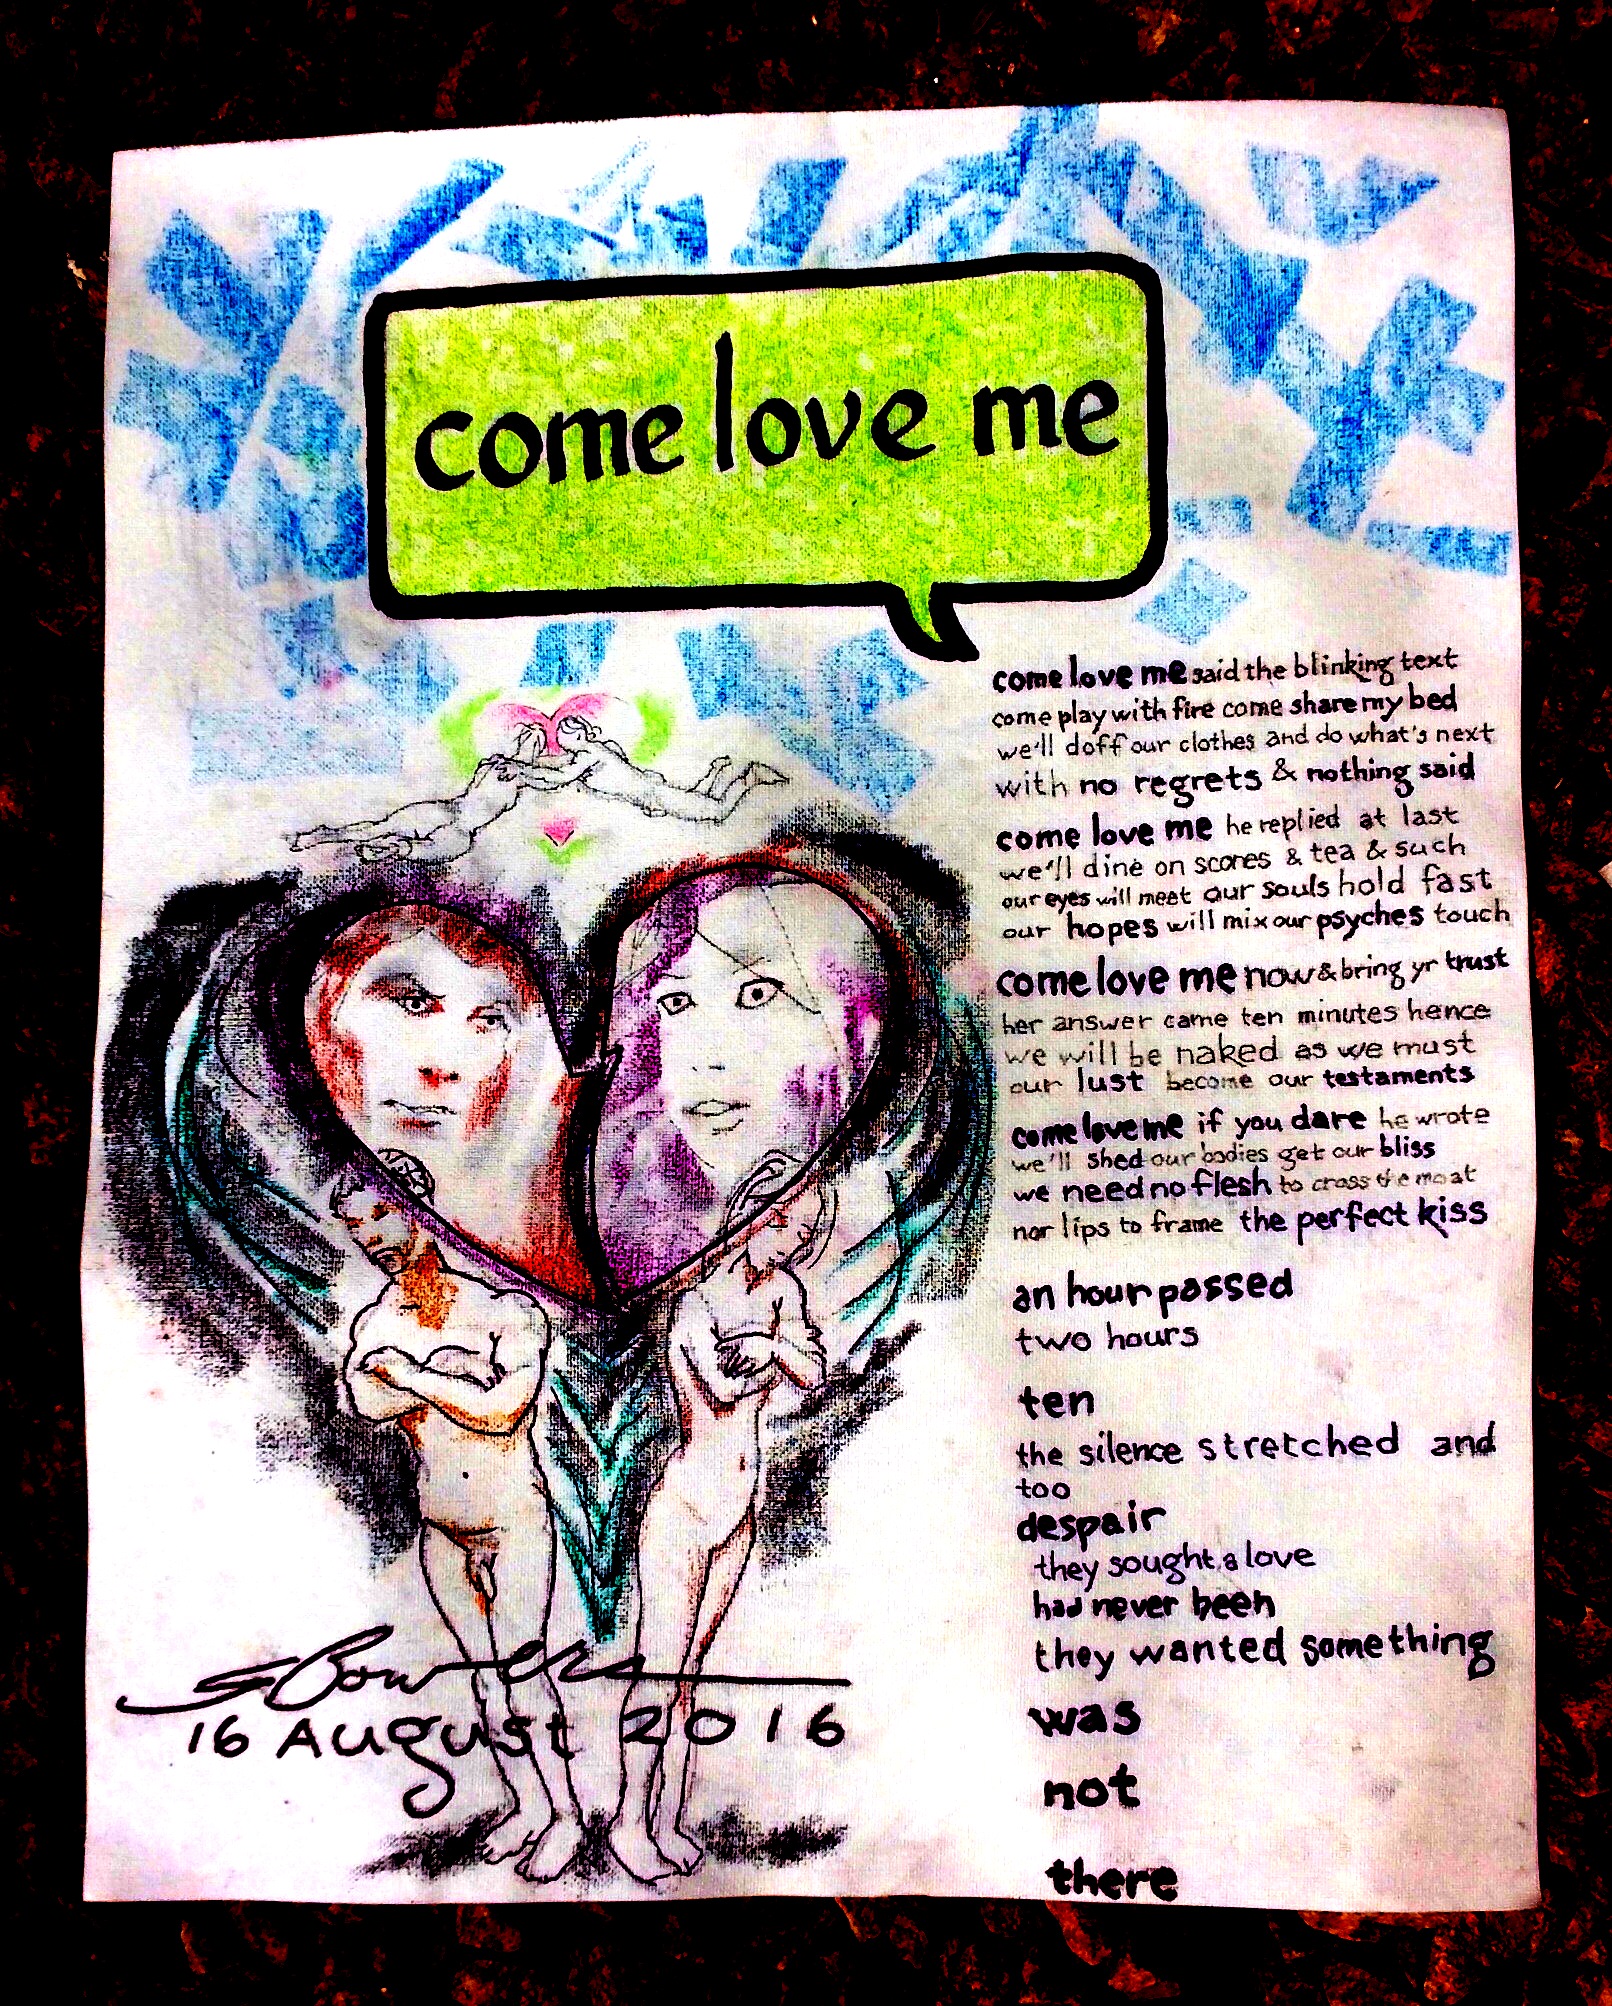 come love me
come love me said the blinking text
come play with fire come share my bed
we'll doff our clothes and do what's next
with no regrets & nothing said
come love me he replied at last
we'll dine on scones & tea & such
our eyes will meet our souls hold fast
our hopes will mix our psyches touch
come love me now & bring yr trust
her answer came ten minutes hence
we will be naked as we must
our lust become our testaments
come love me if you dare he wrote
we'll shed our bodies get our bliss
we need no flesh to cross the moat
nor lips to frame the perfect kiss
an hour passed
two hours
ten
the silence stretched and
too
despair
they sought a love
had never been
they wanted something
was
not
there
16 August 2016